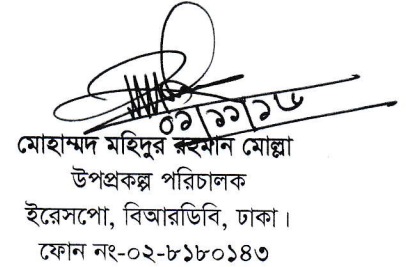 ০১/১১/১৮
মোহাম্মদ মহিদুর রহমান মোল্লা
উপপ্রকল্প পরিচালক
ইরেসপো, বিআরডিবি, ঢাকা।
ফোন নং-০২-৮১৮০১৪৩